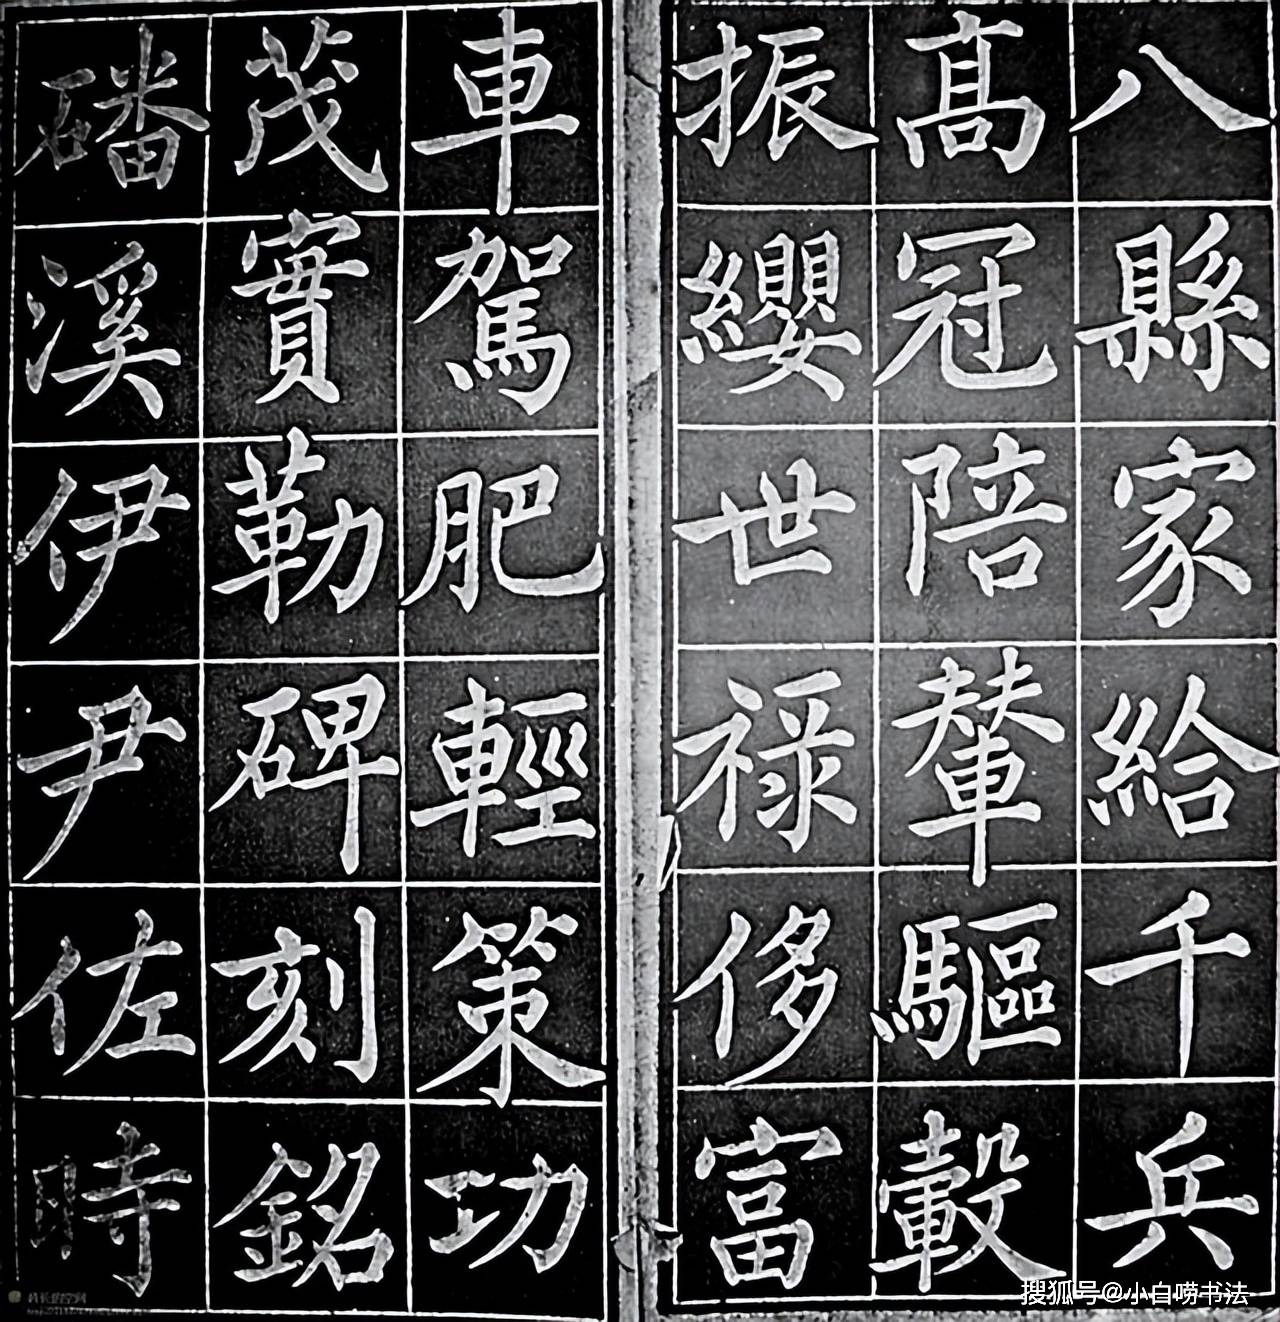 八縣家給千兵
高冠陪輦驅轂
振纓世禄侈富
車駕肥輕策功
茂實勒碑刻銘
磻溪伊尹佐時
搜狐号@小白唠书法